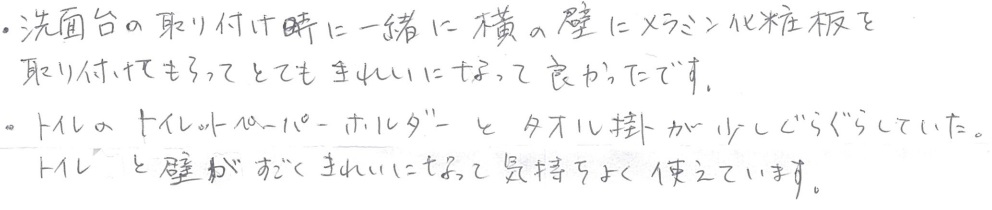 ・洗面台の取り付け時に一緒に横の壁にメラミン化粧板を
取り付けてもらってとてもきれいになって良かったです。
・トイレのトイレットペーパーホルダーとタオル掛が少しぐらぐらしていた。
トイレと壁がすごくきれいになって気持ちよく使えています。